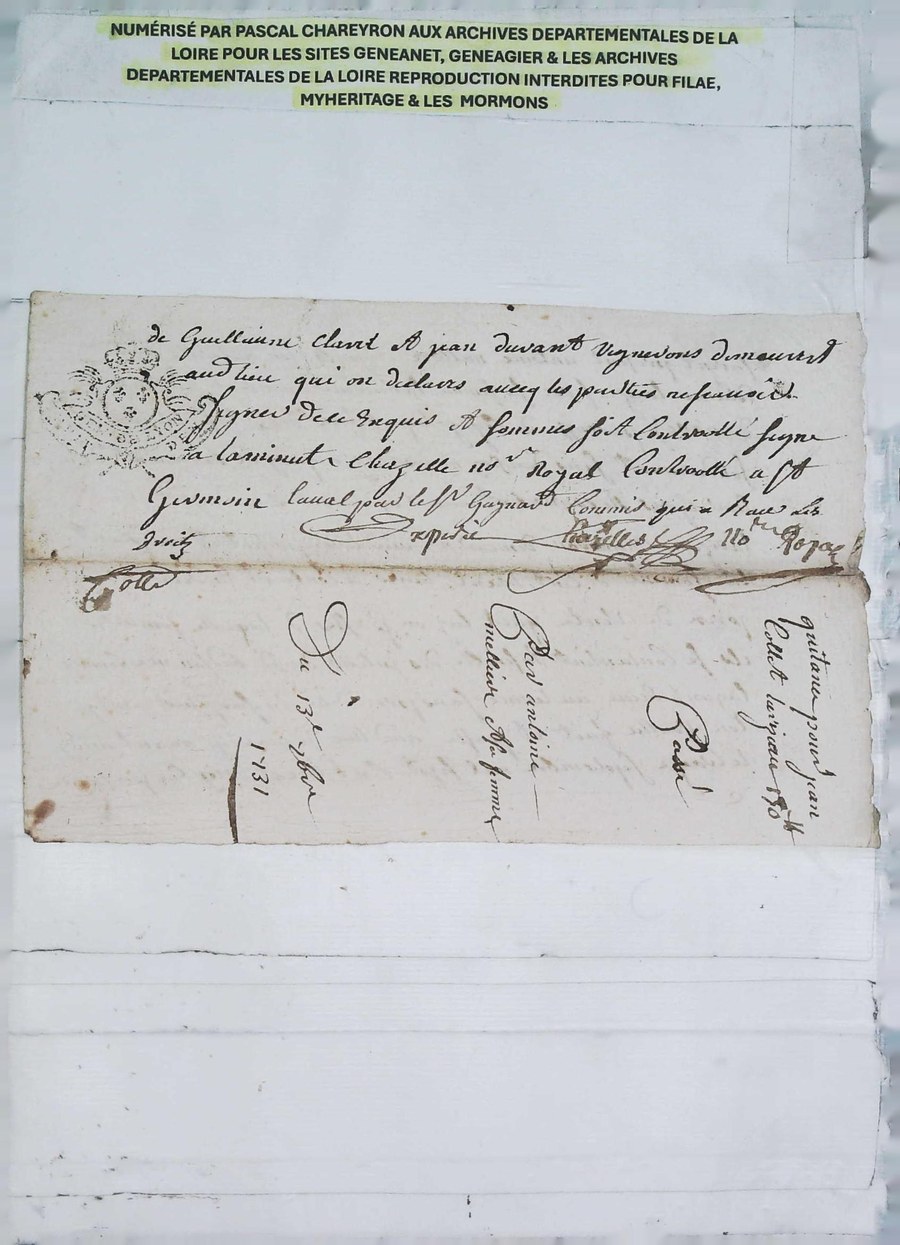 NUMÉRISÉ PAR PASCAL CHAREYRON AUX ARCHIVES DEPARTEMENTALES DE LA
LOIRE POUR LES SITES GENEANET, GENEAGIER & LES ARCHIVES
DEPARTEMENTALES DE LA LOIRE REPRODUCTION INTERDITES POUR FILAE,
MYHERITAGE & LES MORMONS
de Guillaume Claret et jean durant vignerons demeurent
audlieu qui on declaré avecq les parties ne scavoir
signer de ce enquis et sommes soit Controollé signe
a la minutte Chazelle nore Royal Controollé a St
Germain laval par le Sr Commis qui a Receu les
droitz Expedié Chazelles Nore Royal
Colla
quitance pour jean
Collet
Passé
Par antoine
mellieve et sa femme
Du 13e 7bre
1731